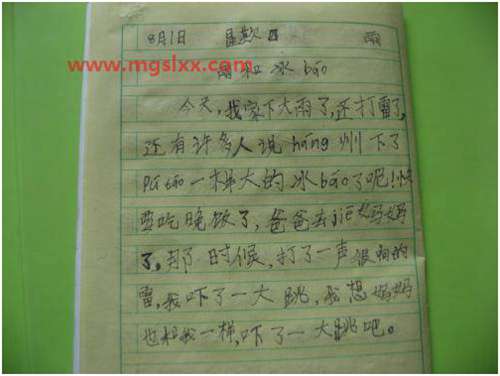 8月1日 星期日 雨
www.mgslxx.com
雨和冰báo
今天,我家下大雨了,还打雷了,
还有许多人说háng州下了
pú táo一样大的冰báo了呢!快
要吃晚饭了,爸爸去jiē妈妈
了,那时候,打了一声很响的
雷,我吓了一大跳,我想妈妈
也和我一样,吓了一大跳吧。